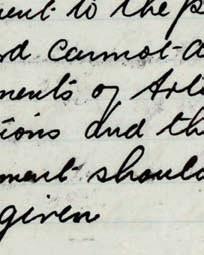 ment to the p
rd cannot a
ments of Arti
tions and th
ment should
given